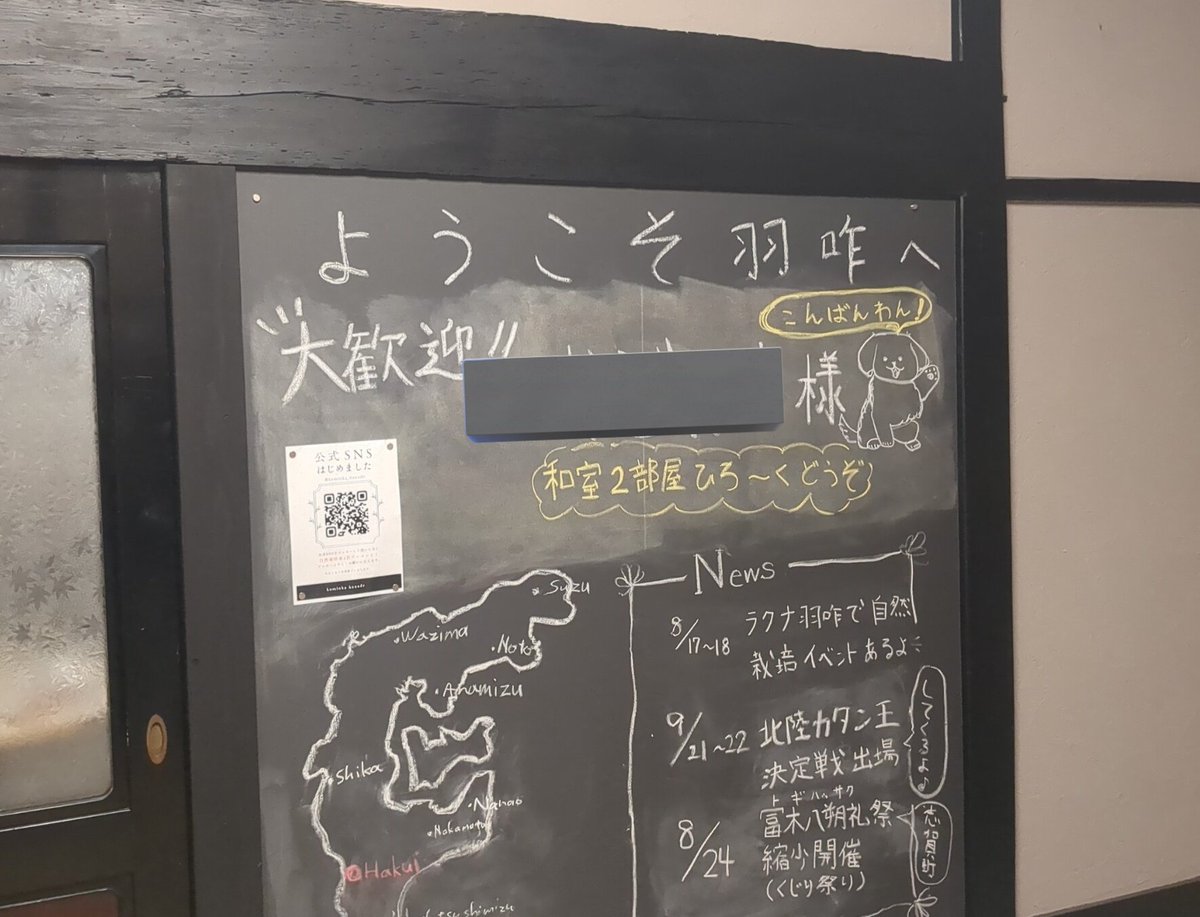 ようこそ羽咋へ
大歓迎!!
様
こんばんわん!
和室2部屋ひろ〜くどうぞ
公式SNS
はじめました
kominka kanade
Suzu
Wazima
Noto
Anamizu
Shika
Nanao
Nakanoto
Hakui
News
8/17~18 ラクナ羽咋で自然
栽培イベントあるよ
9/21~22 北陸カタン王
決定戦出場
してくるよ♪
トギ ハッサク
8/24 冨木八朔礼祭
縮小開催
(くじり祭り)
志賀町